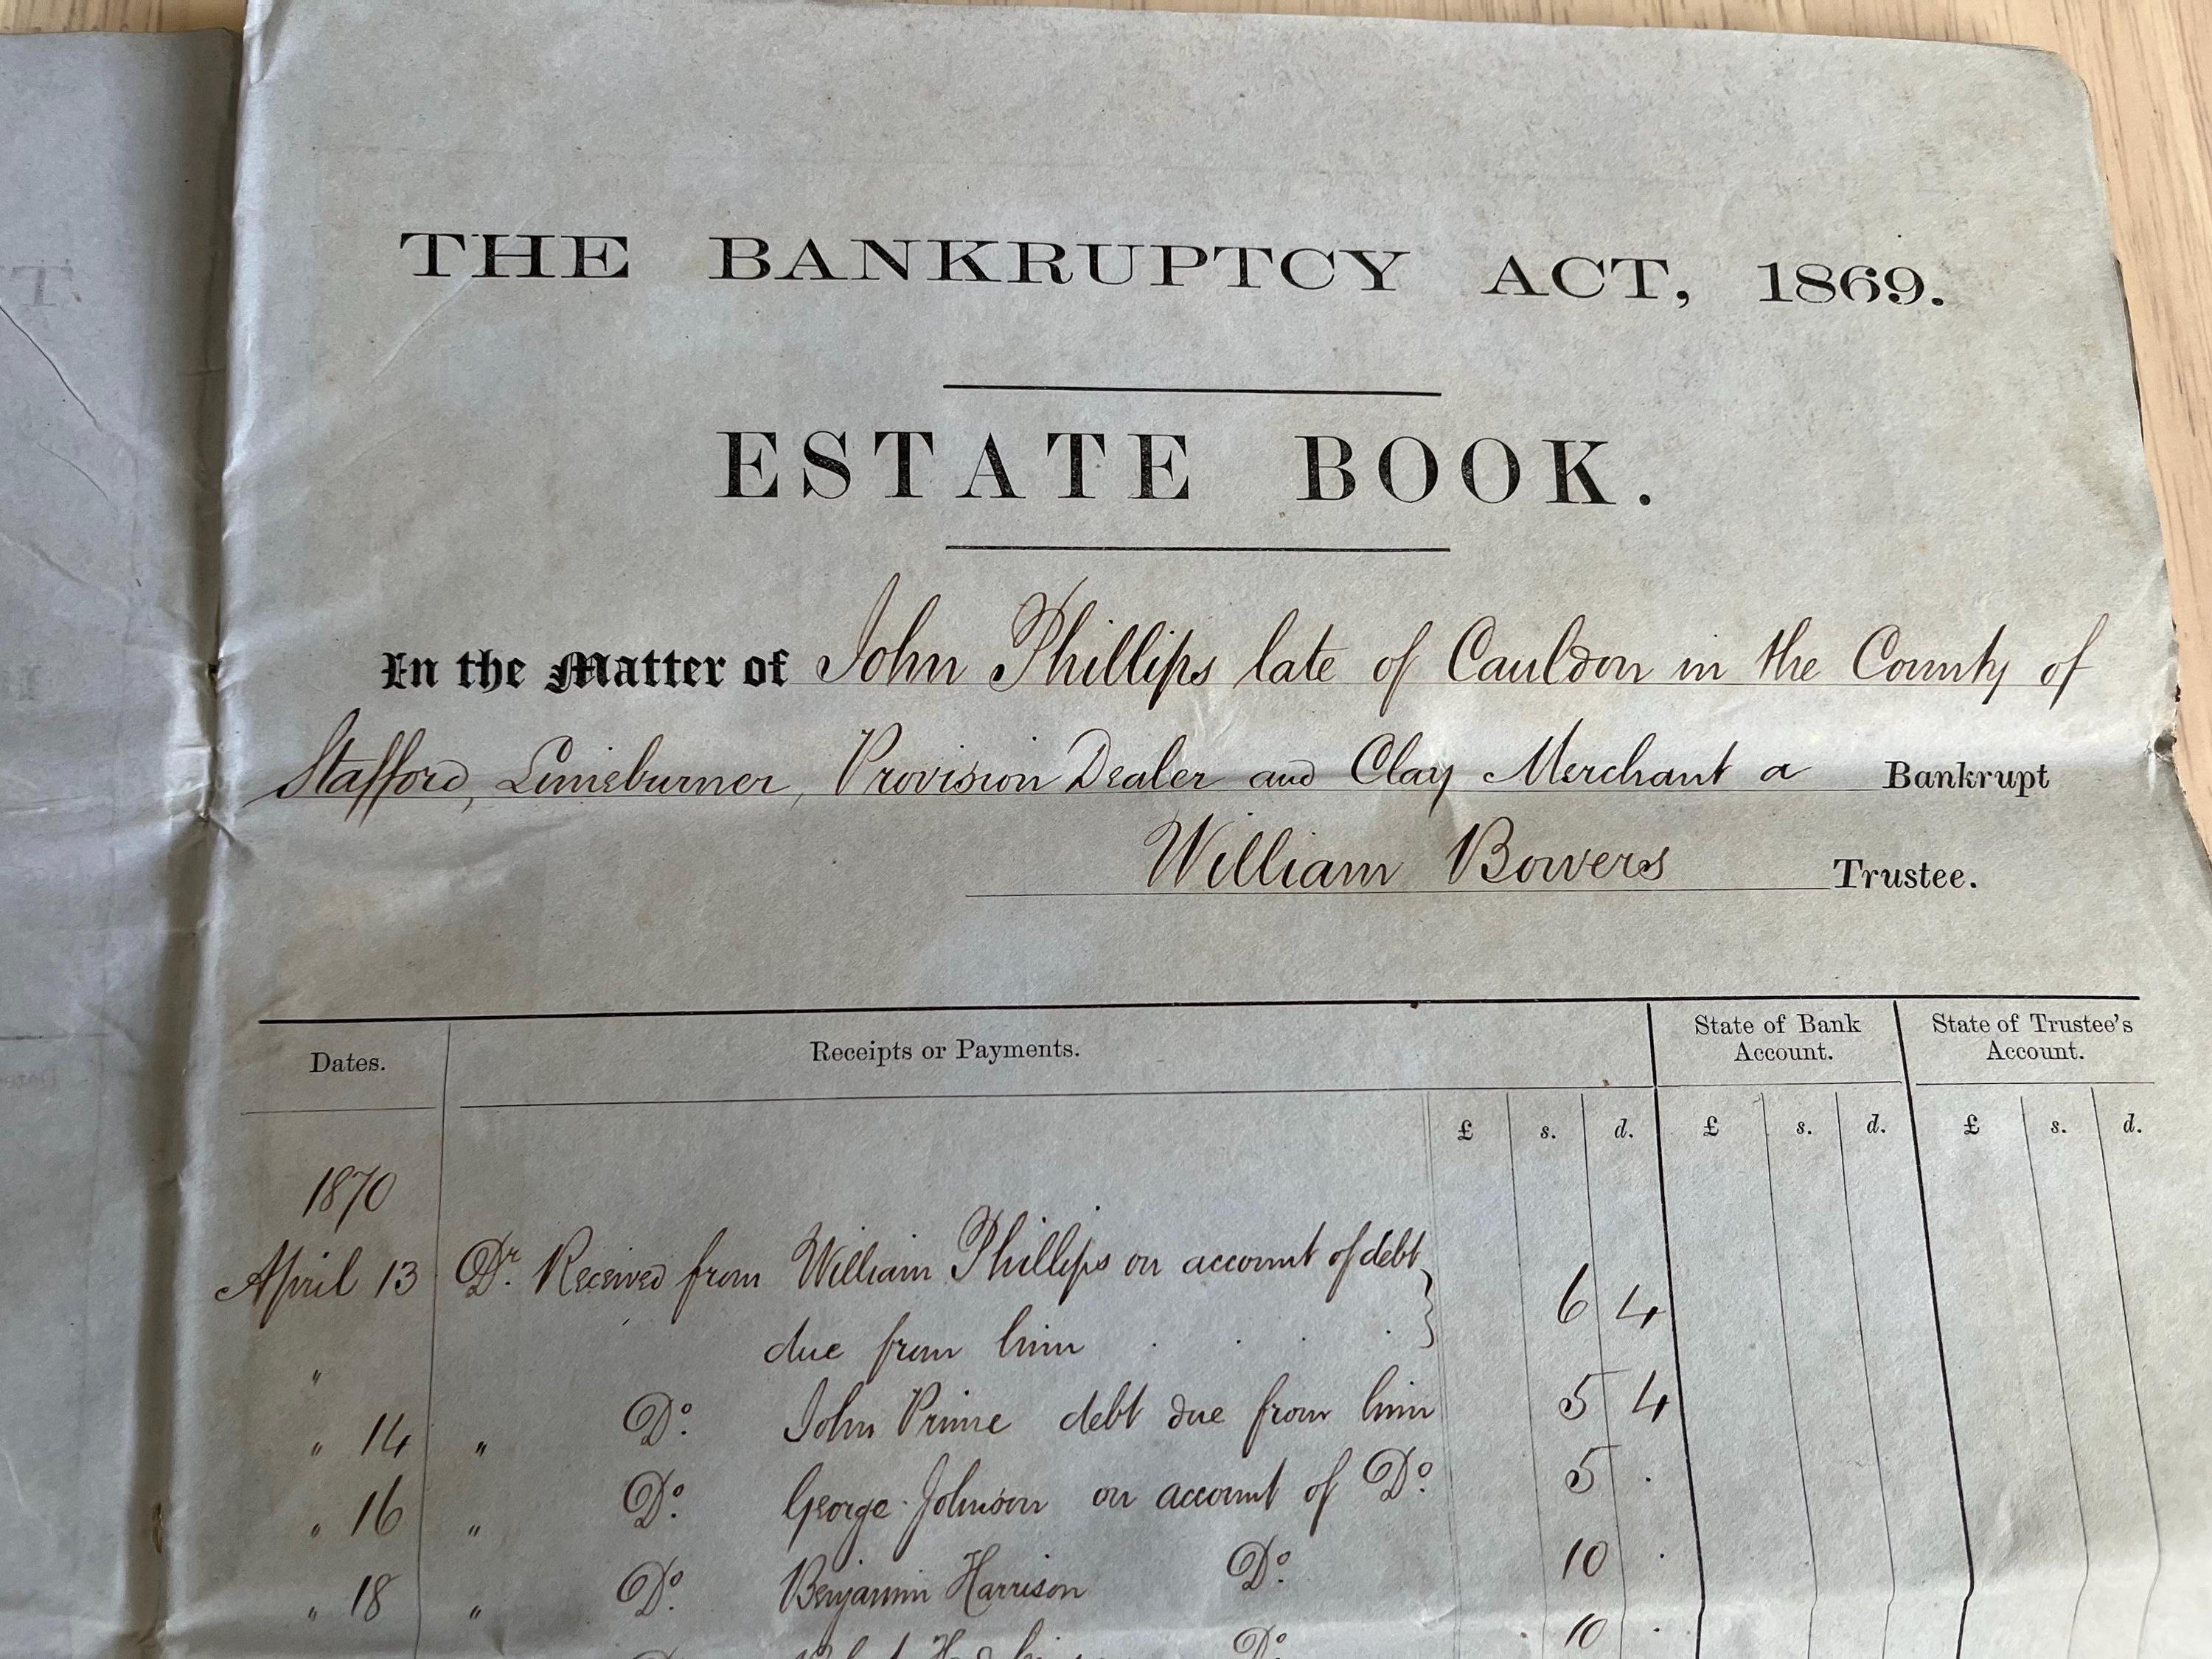 THE BANKRUPTCY ACT, 1869.
ESTATE BOOK.
In the Matter of John Phillips late of Cauldon in the County of
Stafford, Limeburner, Provision Dealer and Clay Merchant a Bankrupt
William Bowers Trustee.
Dates. Receipts or Payments. State of Bank Account. State of Trustee's Account.
£ s. d. £ s. d. £ s. d.
1870
April 13 Dr. Received from William Phillips on account of debt
due from him . . . } 6 4
" 14 " Do. John Prime debt due from him 5 4
" 16 " Do. George Johnson on account of Do. 5 .
" 18 " Do. Benjamin Harrison Do. 10 .
Do. 10 .